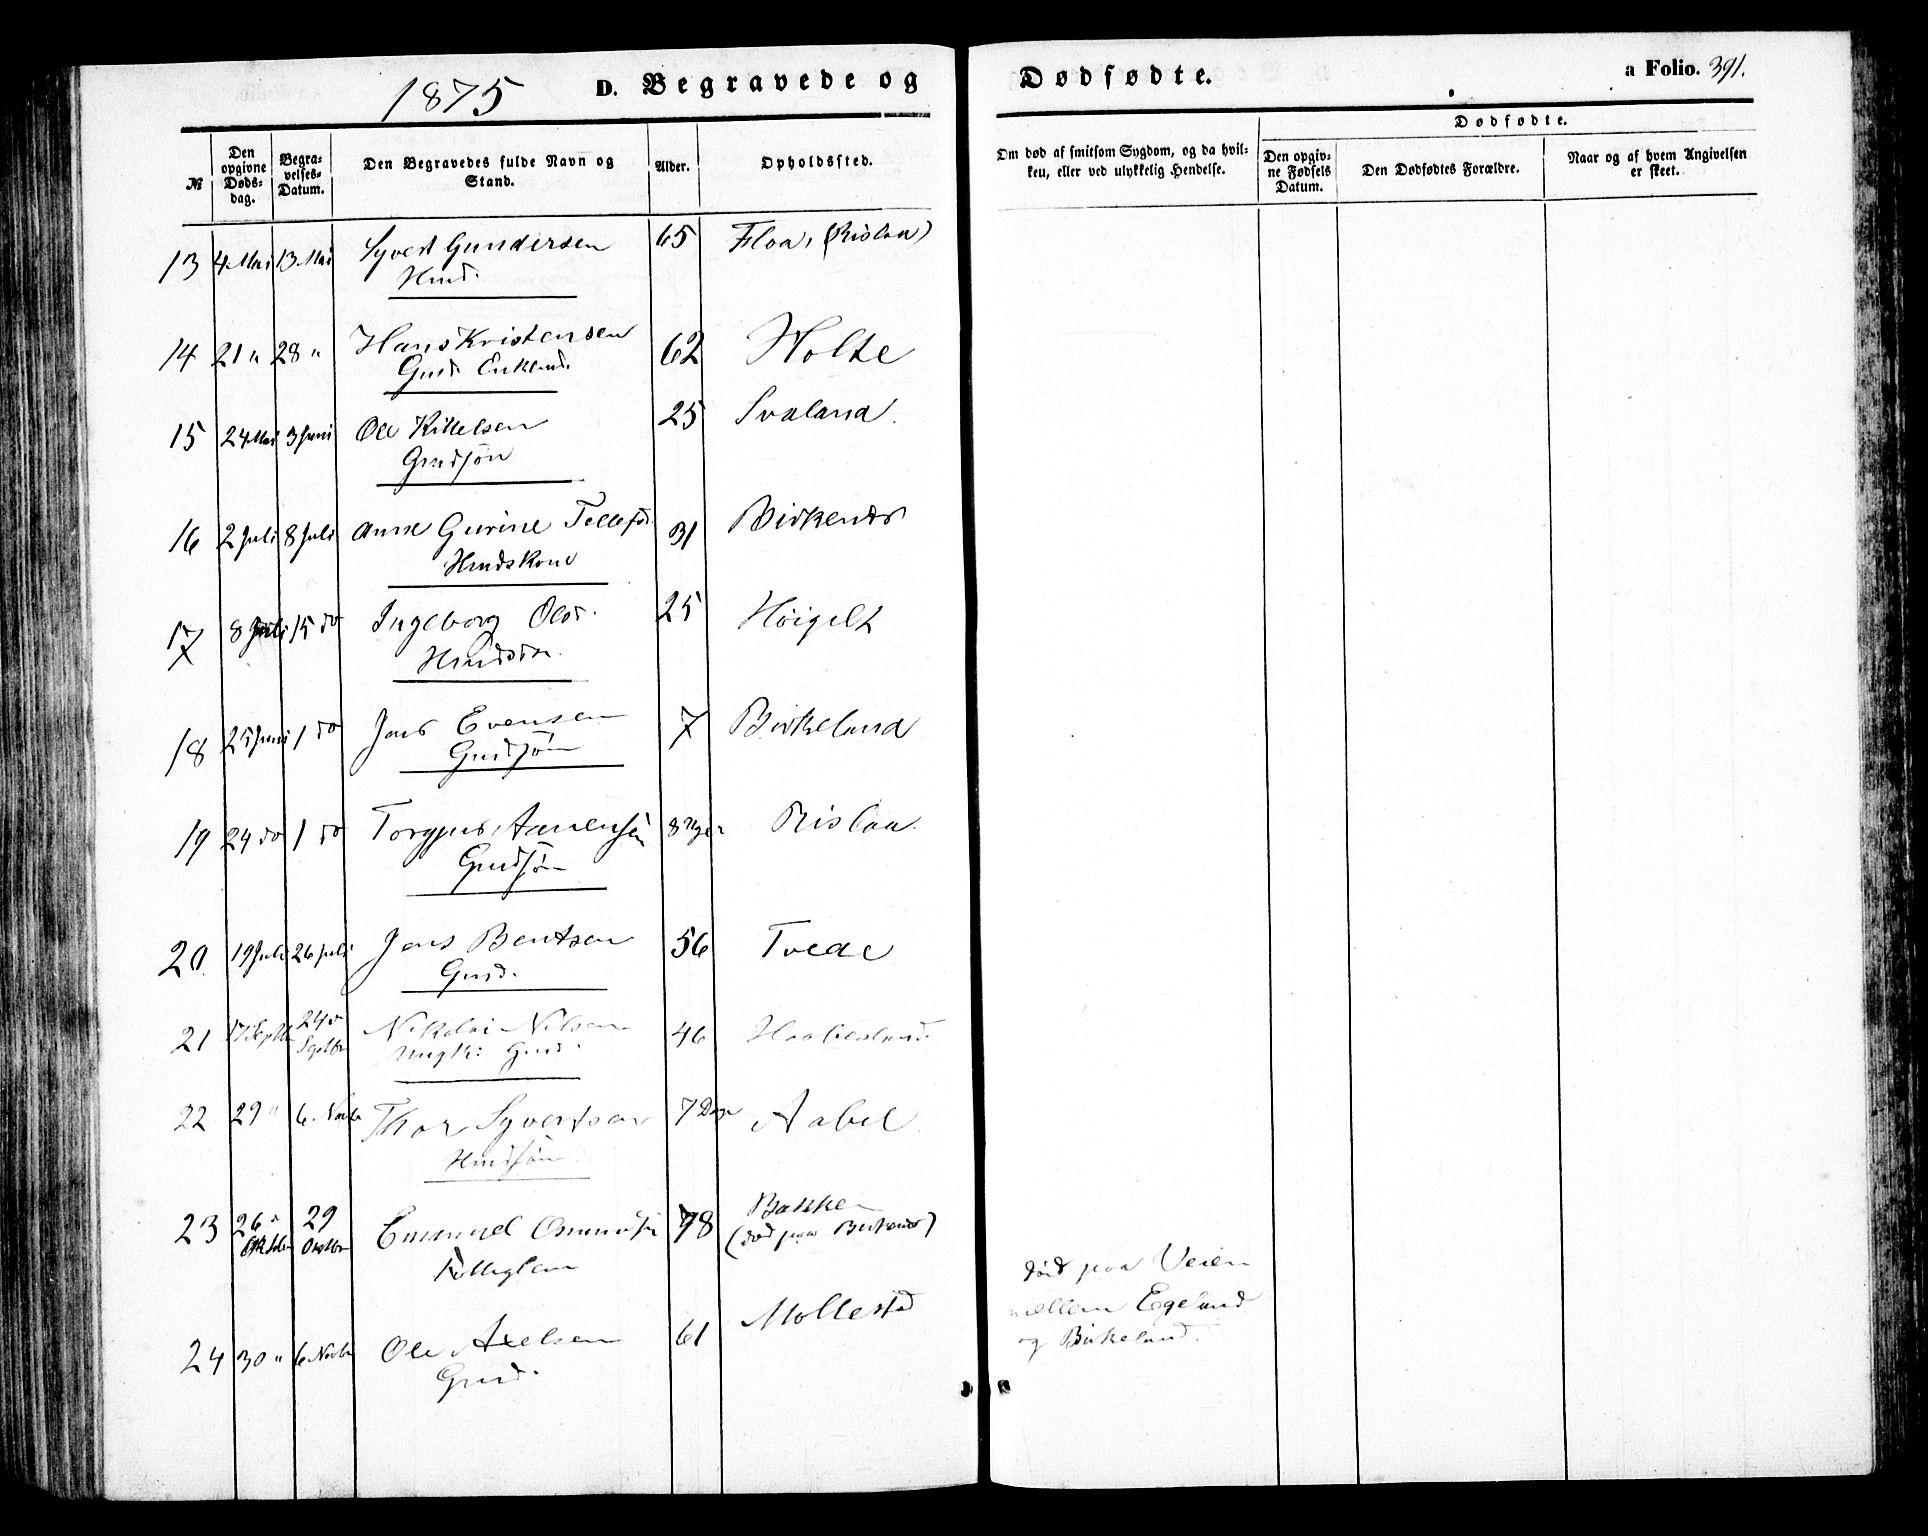 1875 D. Begravede og Dødfødte. a Folio. 391.
№ Den opgivne Døds-dag. Begra-velses-Datum. Den Begravedes fulde Navn og Stand. Alder. Opholdssted. Om død af smitsom Sygdom, og da hvil-ken, eller ved ulykkelig Hendelse. Dødfødte. Den opgiv-ne Fødsels Datum. Den Dødfødtes Forældre. Naar og af hvem Angivelsen er skeet.
13 4 Mai 13 Mai Syvert Gundersen 65 Floa, (Rislaa)
Hmd.
14 21 " 28 " Hans Kristensen 62 Holte
Gmd. Enkemd.
15 24 Mai 3 Juni Ole Kittelsen 25 Svaland.
Gmdsøn
16 2 Juli 8 Juli Anne Gurine Tellefsd. 31 Birkenæs
Hmdskone
17 8 Juli 15 do Ingeborg Olsd. 25 Høigilt
Hmdsdr.
18 25 Juni 1 do Jens Evensen 7 Birkeland
Gmdsøn
19 24 do 1 do Torgjus Aanensen 8 Uger Rislaa.
Gmdsøn
20. 19 Juli 26 Juli Jens Bentsen 56 Tvede
Gmd.
21 17 Septbr 24de Septbr Nikolai Nilsen 46 Haabesland.
Ungk: Gmd.
22 29 " 6. Novbr Thor Syvertsen 7 Dage Aabel
Hmdsøn
23 26 Oktober 29 Osmundsen 78 Bakken
Emanuel (død paa Birkenæs)
24 30 " 6 Novbr Ole Axelsen 61 Mollestad
Gmd.
død paa Veien
mellem Egeland
og Birkeland.